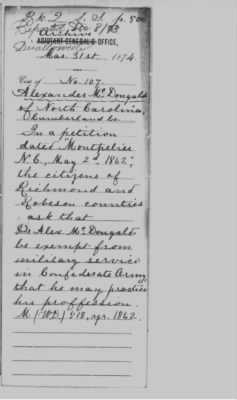 Bk. 2 J. S. p. 500
Reported Dec 8/73
Archive
ADJUTANT GENERAL'S OFFICE,
Disallowed
Mar. 31st, 1874.
Copy of No. 107.
Alexander McDougald
of North Carolina,
Cumberland Co.
In a petition
dated "Montpelier
N.C., May 2d 1862,"
the citizens of
Richmond and
Robeson counties
ask that
Alex. McDougald
be exempt from
military service
in Confederate Army,
that he may practice
his proffession.
M (W.D.) 518, yr. 1862.